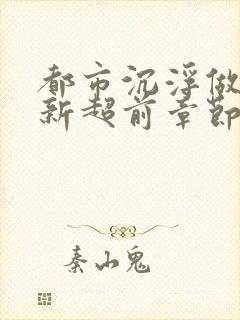 都市沉浮做
新超前章節
秦山鬼